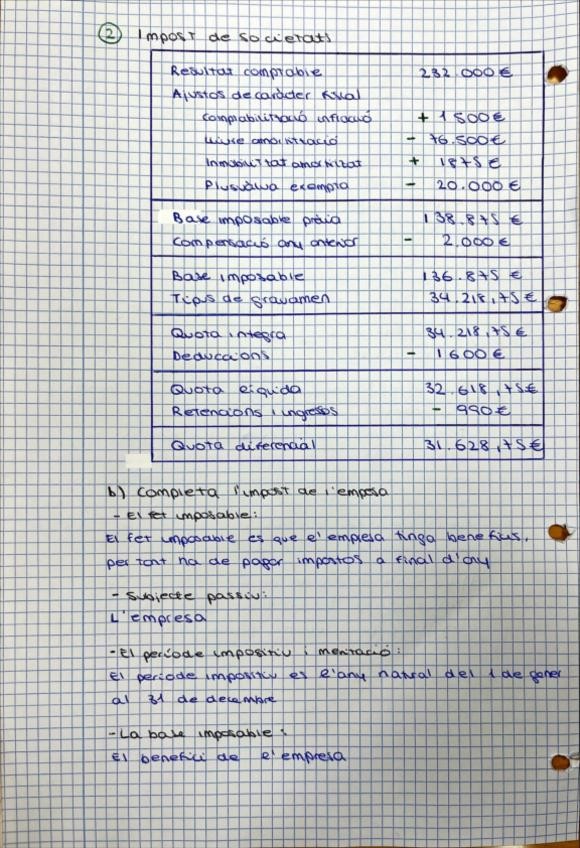 2 Impost de societats
Resultat comptable 232.000€
Ajustos de caràcter fiscal
Comptabilització inflació + 1 500€
Lliure amortització - 76.500€
Immobilitzat amortitzat + 1875€
Plusvàlua exempta - 20.000€
Base imposable prèvia 138.875 €
Compensació any anterior - 2.000€
Base imposable 136.875 €
Tipus de gravamen 34.218,75€
Quota íntegra 34.218,75€
Deduccions - 1600€
Quota líquida 32.618,75€
Retencions i ingressos - 990€
Quota diferencial 31.628,75€
b) Completa l'impost de l'empresa
- El fet imposable:
El fet imposable es que l'empresa tinga beneficis,
per tant ha de pagar impostos a final d'any
- Subjecte passiu:
L'empresa
- El període impositiu i meritació:
El període impositiu es l'any natural del 1 de gener
al 31 de decembre
- La base imposable:
El benefici de l'empresa